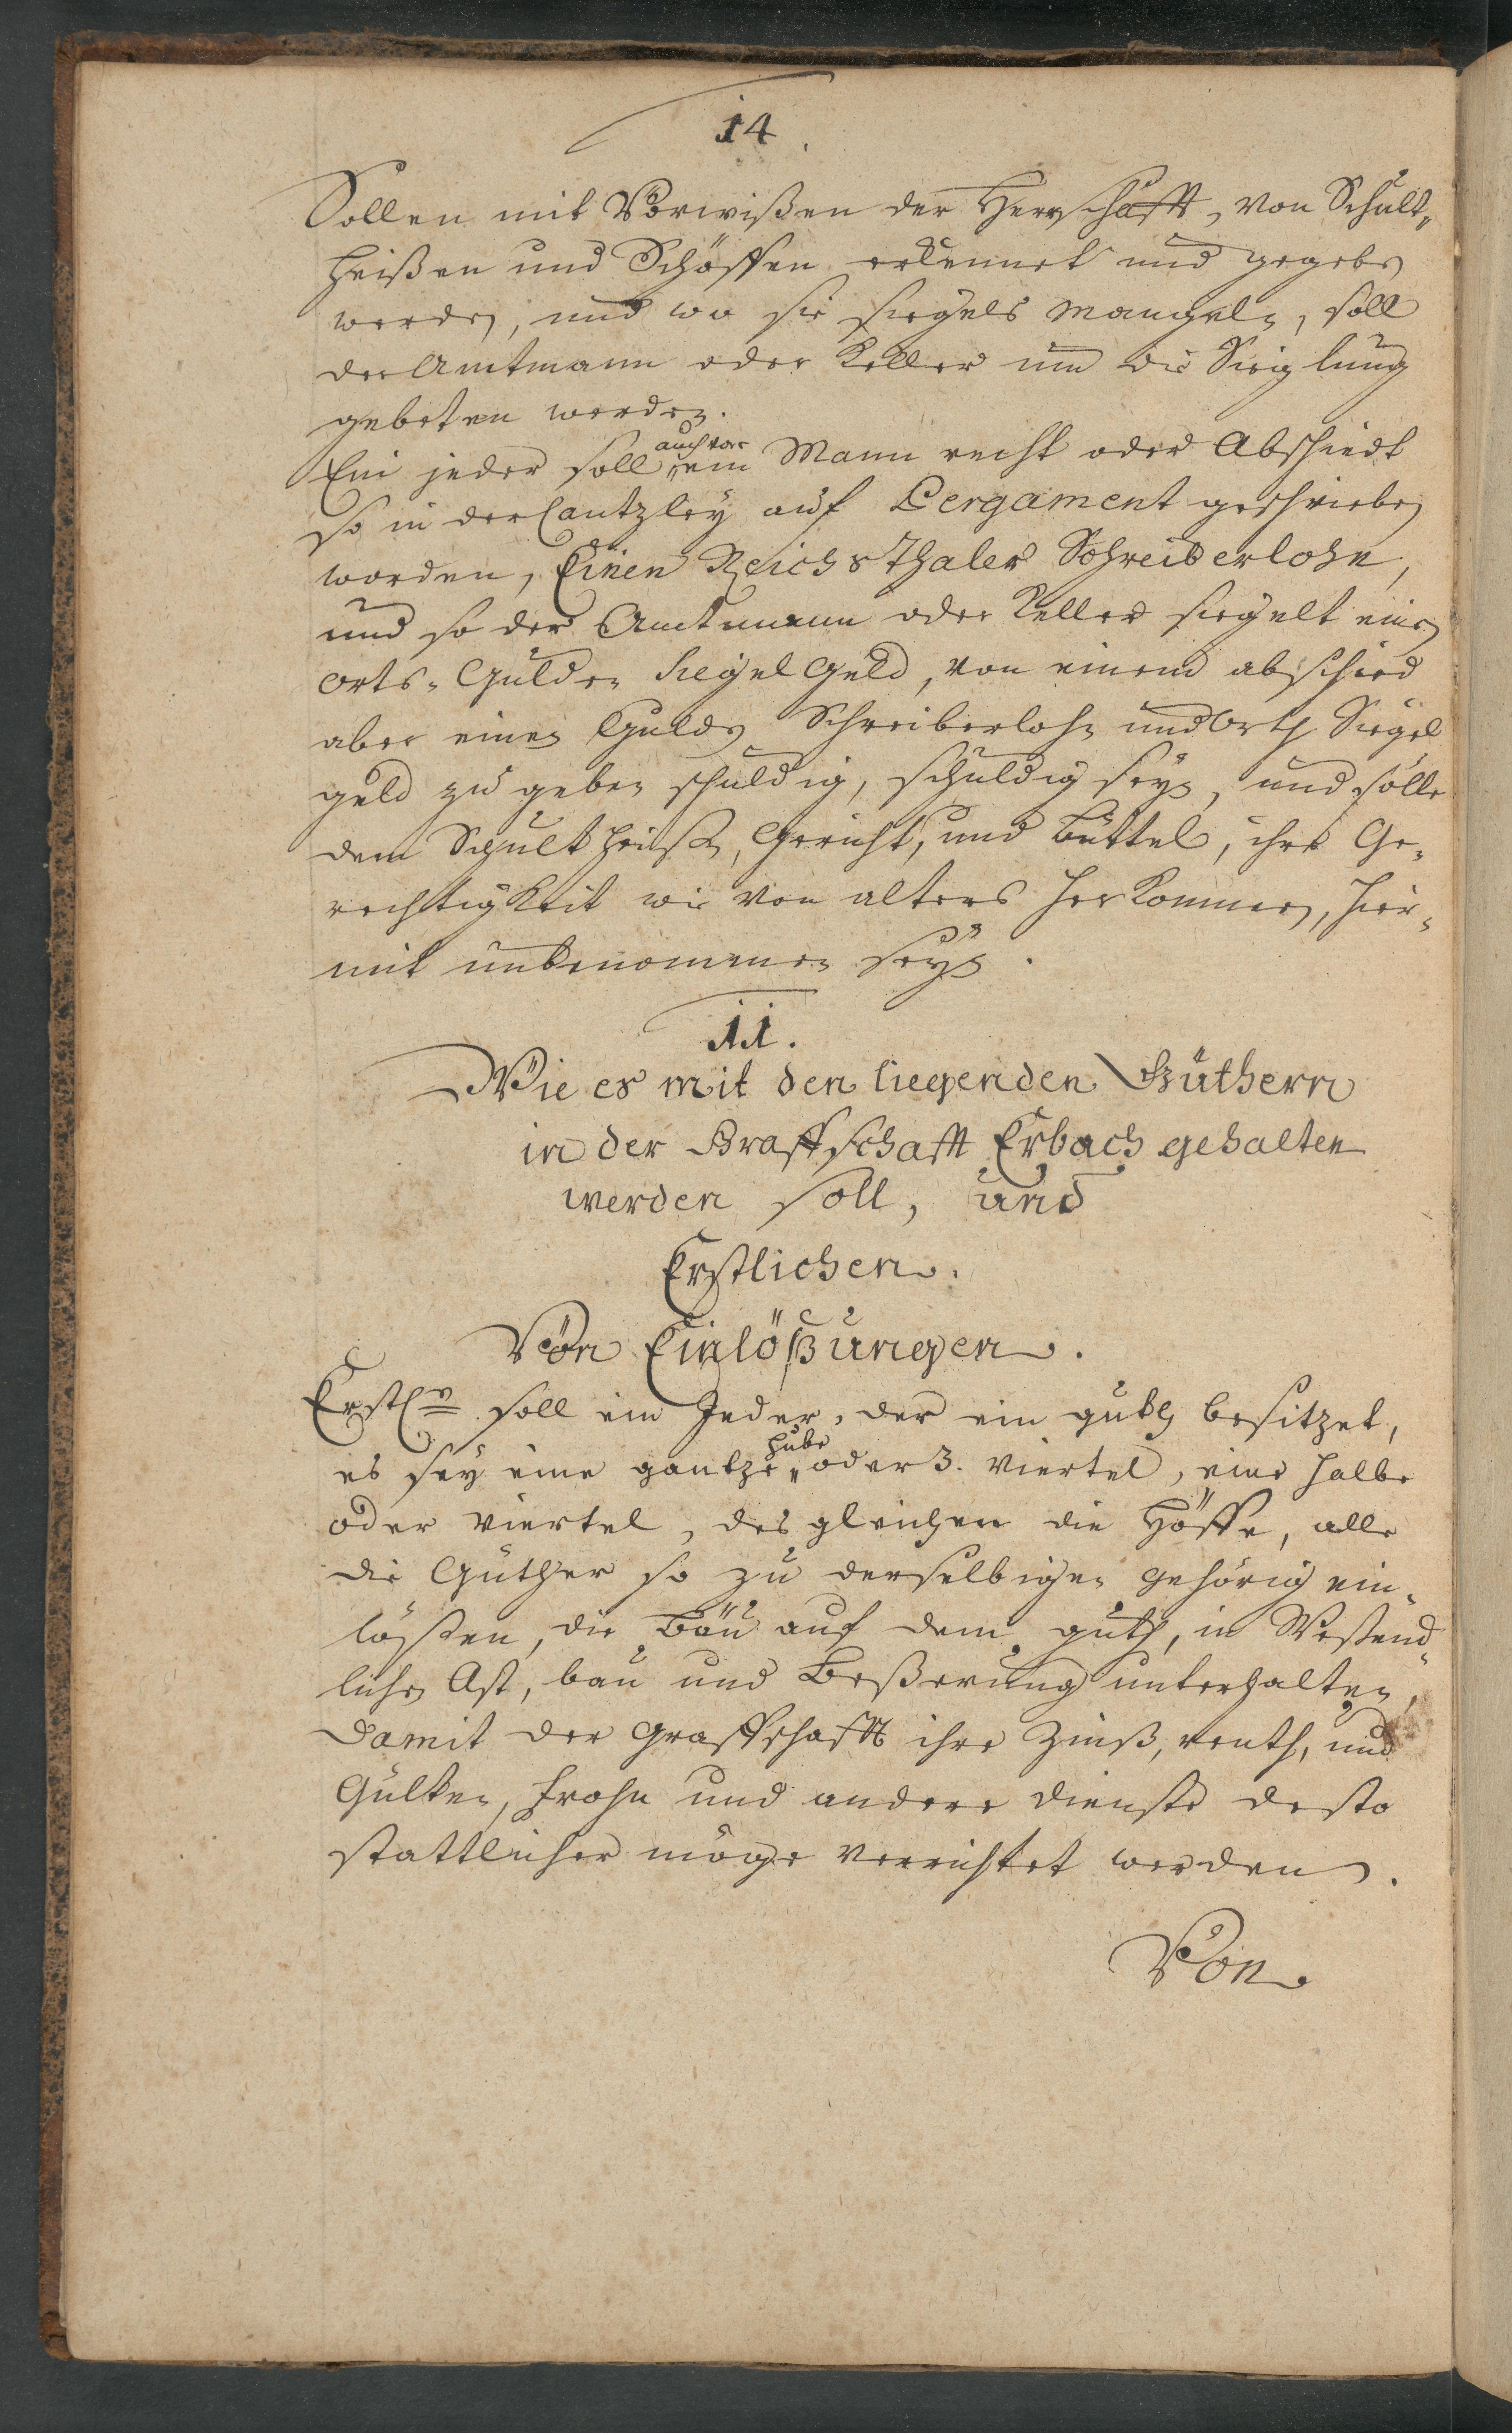 14.
Sollen mit Vorwißen der Herrschafft, von Schult„
heißen und Schöffen erkennet und gegeben
werden, und wo sie siegels mangeln, soll
der Amtmann oder Keller um die Sieglung
gebeten werden.
auch vor
Ein jeder soll „ ein Mann recht oder Abschiedt
so in der Cantzley auf Pergament geschrieben
worden, Einen Reichsthaler Schreiberlohn,
und so der Amtmann oder Keller siegelt einen
orts-Gulden Siegel Geld, von einem abschied
aber einen Gulden Schreiberlohn und Orth Siegel
geld zu geben schuldig, schuldig seyn, und solle
dem Schultheiß, Gericht, und Büttel, ihre Ge„
rechtigkeit wie von alters herkommen, hier„
mit unbenommen seyn.
11.
Wie es mit den liegenden Güthern
in der Graffschafft Erbach gehalten
werden soll, und
Erstlichen.
Von Einlößungen.
Erstl. soll ein Jeder, der ein guth besitzet,
hube
es sey eine gantze „ oder 3. Viertel, eine halbe
oder Viertel, desgleichen die Höffe, alle
die Güther so zu derselbigen gehörig ein„
lößen, die Bäu auf dem guth, in Wesend„
lichen bau und Beßerung unterhalten,
Damit der Graffschafft ihre Zinß, renth, und
Gülten, Frohn und andere Dienste desto
stattlicher möge verrichtet werden.
Von